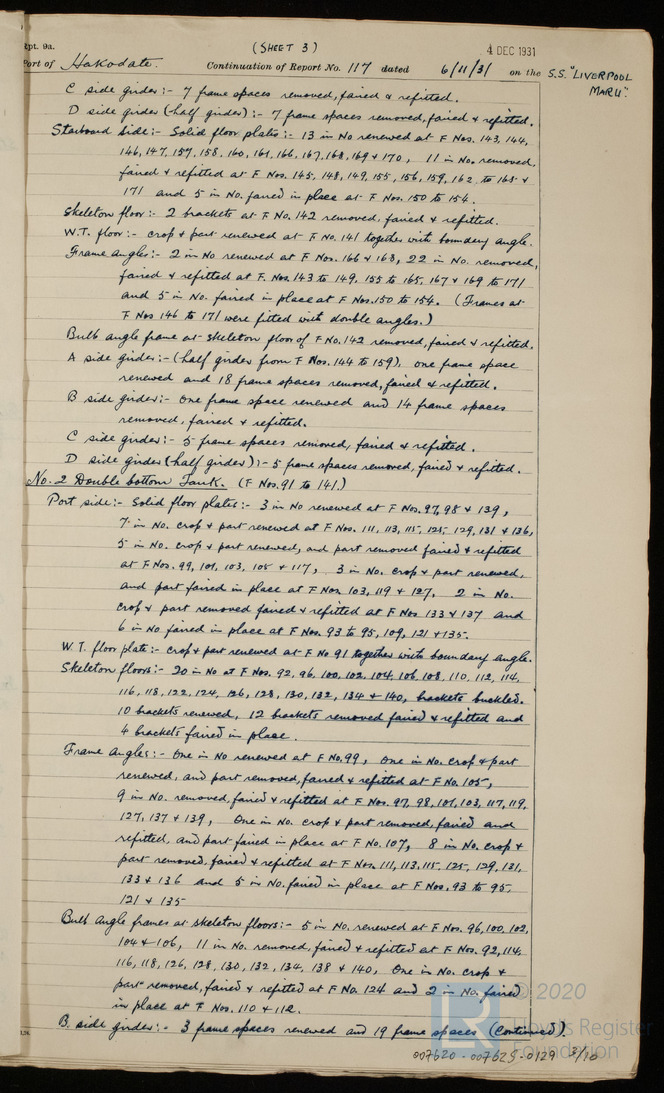 (SHEET 3)
4 DEC 1931
Rpt. 9a.
Port of Hakodate. Continuation of Report No. 117 dated 6/11/31 on the S.S. "LIVERPOOL
MARU".
C side girder:- 7 frame spaces removed, faired & refitted.
D side girder (half girder):- 7 frame spaces removed, faired & refitted.
Starboard Side:- Solid floor plates:- 13 in No renewed at F Nos. 143, 144,
146, 147, 157, 158, 160, 161, 166, 167, 168, 169 & 170, 11 in No. removed,
faired & refitted at F Nos. 145, 148, 149, 155, 156, 159, 162, to 165 &
171 and 5 in No. faired in place at F Nos. 150 to 154.
Skeleton floor:- 2 brackets at F No. 142 removed, faired & refitted.
W.T. floor:- crop & part renewed at F No. 141 together with boundary angle.
Frame Angles:- 2 in No renewed at F Nos. 166 & 168, 22 in No. removed,
faired & refitted at F. Nos. 143 to 149, 155 to 165, 167 & 169 to 171
and 5 in No. faired in place at F Nos. 150 to 154. (Frames at
F Nos 146 to 171 were fitted with double angles.)
Bulb angle frame at skeleton floor of F No. 142 removed, faired & refitted.
A side girder:- (half girder from F Nos. 144 to 159), one frame space
renewed and 18 frame spaces removed, faired & refitted.
B side girder:- one frame space renewed and 14 frame spaces
removed, faired & refitted.
C side girder:- 5 frame spaces removed, faired & refitted.
D side girder (half girder):- 5 frame spaces removed, faired & refitted.
No. 2 Double bottom Tank. (F Nos. 91 to 141.)
Port side:- Solid floor plates:- 3 in No renewed at F Nos. 97, 98 & 139,
7 in No. crop & part renewed at F Nos. 111, 113, 115, 125, 129, 131 & 136,
5 in No. crop & part renewed, and part removed faired & refitted
at F Nos. 99, 101, 103, 105 & 117, 3 in No. crop & part renewed,
and part faired in place at F Nos. 103, 119 & 127, 2 in No.
crop & part removed faired & refitted at F Nos 133 & 137 and
6 in No faired in place at F Nos. 93 to 95, 109, 121 & 135.
W.T. floor plate:- crop & part renewed at F No 91 together with boundary angle.
Skeleton floors:- 20 in No at F Nos. 92, 96, 100, 102, 104, 106, 108, 110, 112, 114,
116, 118, 122, 124, 126, 128, 130, 132, 134 & 140, brackets buckled.
10 brackets renewed, 12 brackets removed faired & refitted and
4 brackets faired in place.
Frame Angles:- One in No renewed at F No. 99, one in No. crop & part
renewed, and part removed, faired & refitted at F No. 105,
9 in No. removed, faired & refitted at F Nos. 97, 98, 101, 103, 117, 119,
127, 137 & 139, One in No. crop & part removed, faired and
refitted, and part faired in place at F No. 107, 8 in No. crop &
part removed, faired & refitted at F Nos. 111, 113, 115, 125, 129, 131,
133 & 136 and 5 in No. faired in place at F Nos. 93 to 95,
121 & 135
Bulb Angle frames at skeleton floors:- 5 in No. renewed at F Nos. 96, 100, 102,
104 & 106, 11 in No. removed, faired & refitted at F Nos. 92, 114,
116, 118, 126, 128, 130, 132, 134, 138 & 140, One in No. crop &
part removed, faired & refitted at F No. 124 and 2 in No. faired
in place at F Nos. 110 & 112.
B. side girder:- 3 frame spaces renewed and 19 frame spaces (continued)
© 2020
LR Lloyd's Register
Foundation
007620-007625-0129 3/10